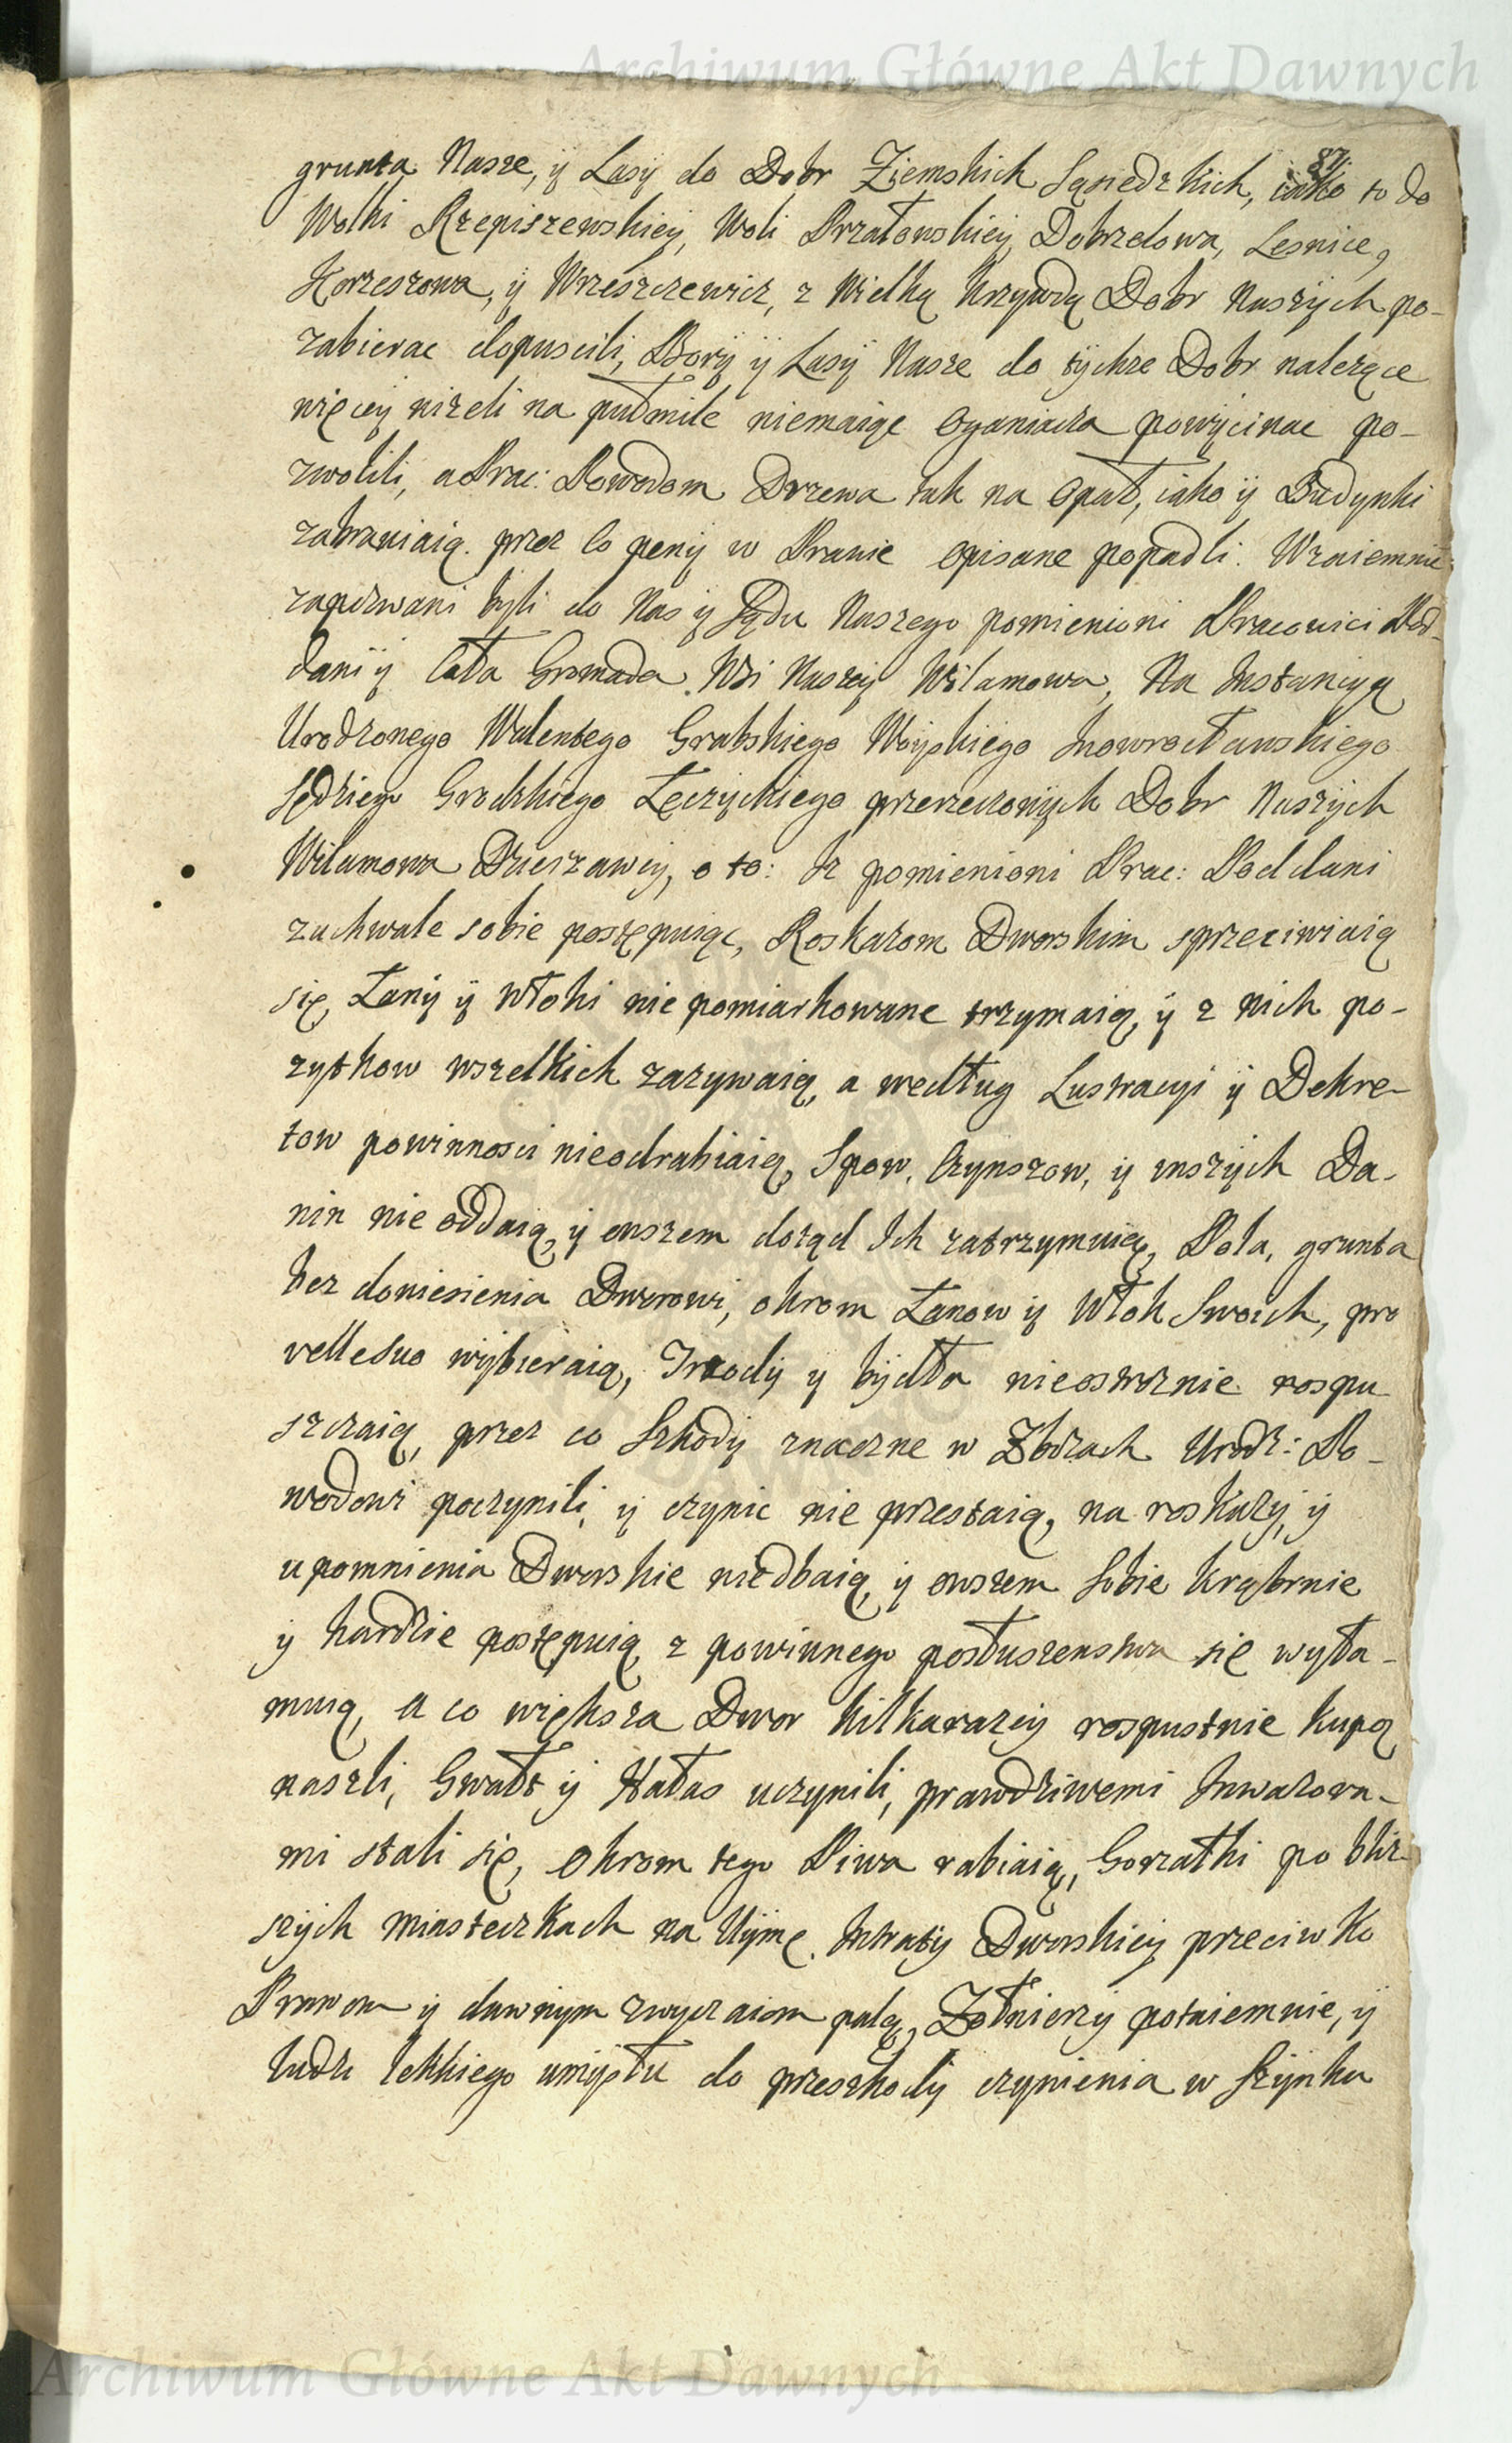 Archiwum Główne Akt Dawnych
87
grunta Nasze, ÿ Lasÿ do Dobr Ziemskich Sąsiedzkich, iako to do
Wolki Rzepiszewskieÿ, Woli Przatowskieÿ, Dobrzelowa, Lesnice,
Korzeszowa, ÿ Wrzeszczewicz, z Wielką Krzywdą Dobr Naszÿch po-
zabierac dopuscili, Borÿ ÿ Lasÿ Nasze do tÿchze Dobr nalezące
więceÿ nizeli na pułmile niemaiąc Oganiacza powÿcinac po-
zwolili, a Prac: Powodom Drzewa tak na Opał, iako ÿ Budynki
zabraniaią. przez Co penÿ w Prawie Opisane popadli. Wzaiemnie
zapozwani bÿli do Nas ÿ Sądu Naszego pomienieni Pracowici Pod-
dani ÿ Cała Gromada Wsi Naszeÿ Wilamowa, Na Instancyą
Urodzonego Walentego Grabskiego Woÿskiego Inowrocławskiego
Sędziego Grodzkiego Łęczyckiego przerzeczonÿch Dobr Naszÿch
Wilamowa Dzierzawcÿ, o to: Iz pomienioni Prac: Poddani
zuchwale sobie postępuiąc, Roskazom Dworskim sprzeciwiaią
się, Łanÿ ÿ Włoki nie pomiarkowane trzymaią, ÿ z nich po-
zytkow wszelkich zazywaią, a według Lustracyi ÿ Dekre-
tow powinnosci nieodrabiaią, Spow, Czynszow, ÿ inszÿch Da-
nin nie oddaią, ÿ owszem dotąd Ich zatrzymuią, Pola, grunta
bez doniesienia Dworowi, okrom Łanow ÿ Włok Swoich, pro
velle suo wÿbieraią, Trzodÿ ÿ bÿdła nieostroznie rospu
szczaią, przez co Szkodÿ znaczne w Zbozach Urodz: Po-
wodowi poczynili, ÿ czynic nie przestaią, na roskazÿ, ÿ
upomnienia Dworskie niedbaią, ÿ owszem Sobie krąbrnie
ÿ hardzie postępuią z powinnego posłuszenstwa się wyła-
muią, A co większa Dwor kilkarazÿ rospustnie kupą
naszli, Gwałt ÿ Hałas uczynili, prawdziwemi Inwazora-
mi stali się, Okrom tego Piwa rabiaią, Gorzałki po bliz-
szÿch Miasteczkach na Uÿmę Intratÿ Dworskieÿ przeciwko
Prawom ÿ dawnym zwyczaiom palą, Zołnierzÿ potaiemnie, ÿ
ludzi lekkiego umÿsłu do przeszkodÿ czynienia w Szÿnku
Archiwum Główne Akt Dawnych